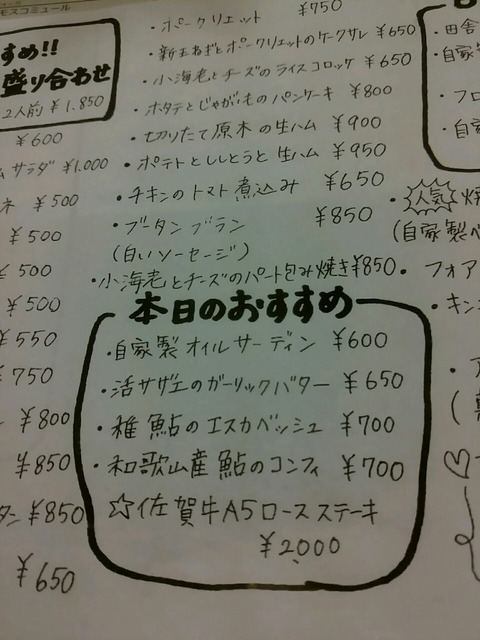 モスコミュール
すめ!!
盛り合わせ
2人前 ¥1,850
¥600
サラダ ¥1,000
ネ ¥500
¥500
¥500
¥500
¥550
¥750
¥800
¥850
タン ¥850
¥650
・ポークリエット ¥750
・新玉ねぎとポークリエットのケークサレ ¥650
・小海老とチーズのライスコロッケ ¥650
・ホタテとじゃがいものパンケーキ ¥800
・切りたて原木の生ハム ¥900
・ポテトとししとうと生ハム ¥950
・チキンのトマト煮込み ¥650
・ブータンブラン ¥850
(白いソーセージ)
・小海老とチーズのパート包み焼き ¥850
本日のおすすめ
・自家製オイルサーディン ¥600
・活サザエのガーリックバター ¥650
・稚鮎のエスカベッシュ ¥700
・和歌山産鮎のコンフィ ¥700
☆佐賀牛A5ロースステーキ
¥2,000
・田舎
・自家製
・フロ
・自
・人気 焼
(自家製ベ
・フォア
・キン